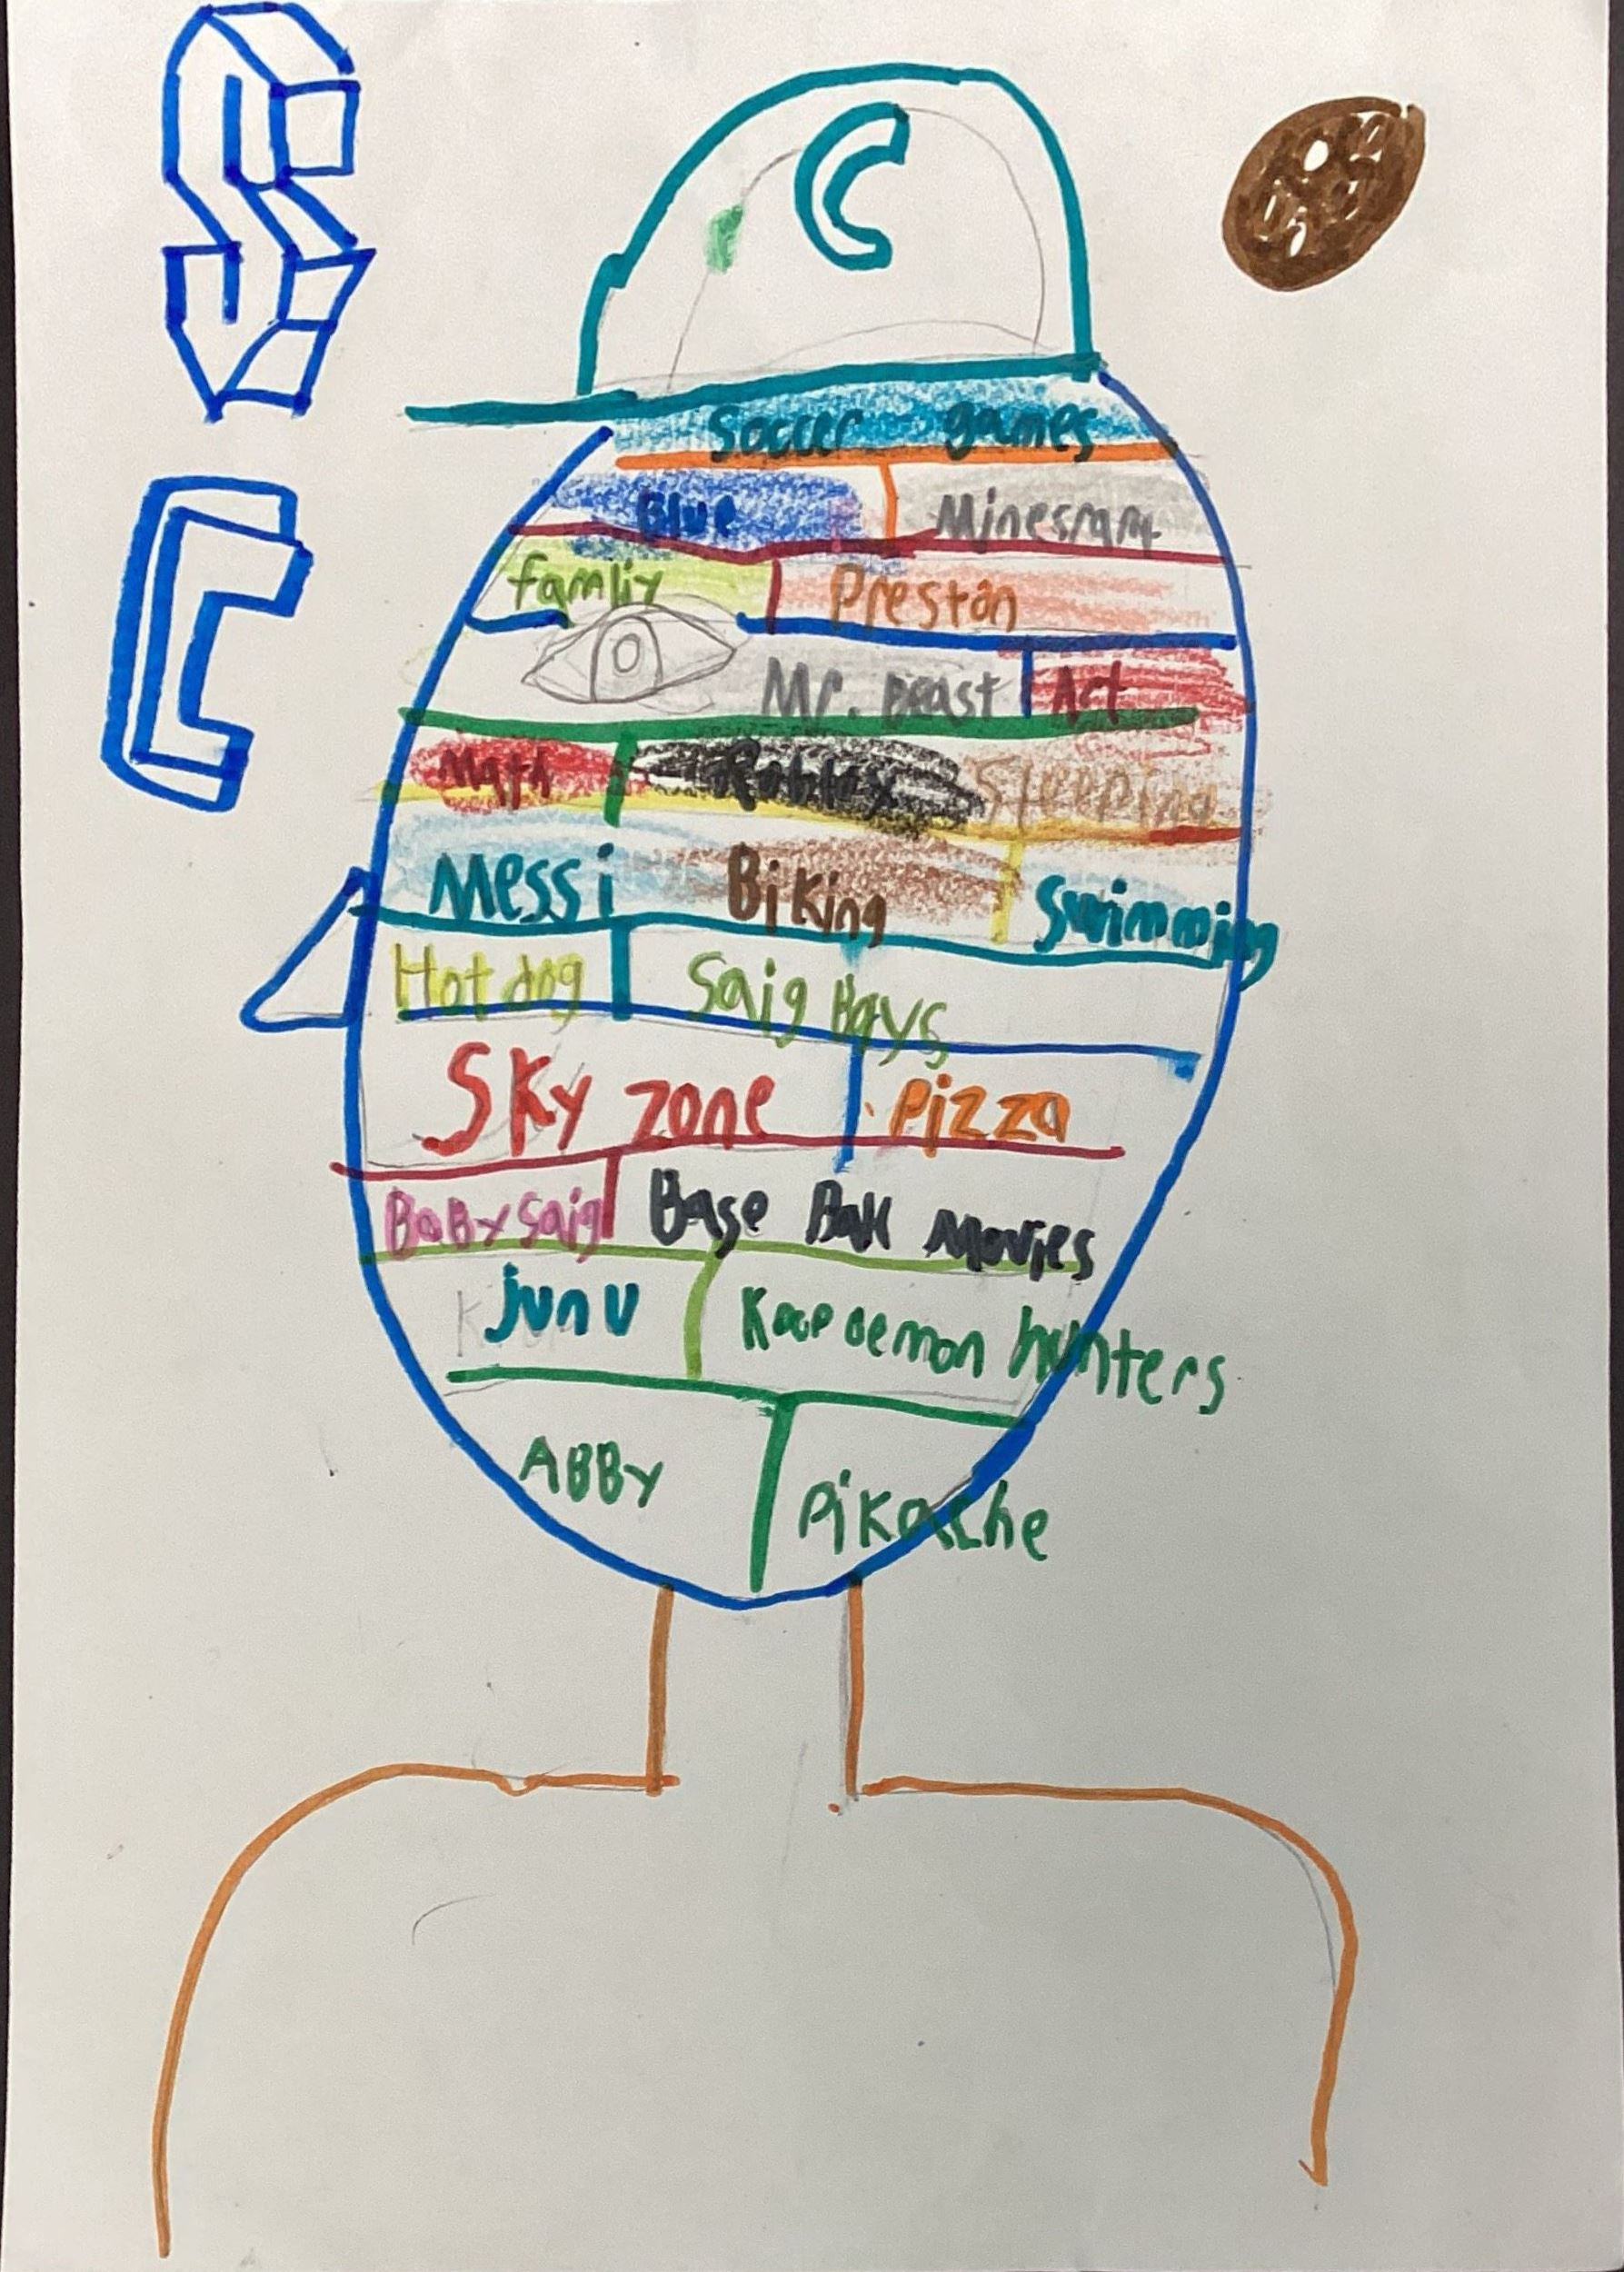 S
C
C
Soccer games
Blue Minecraft
famliy Preston
Mr. Beast Art
Math Roblox Sleeping
Messi Biking Swimming
Hot dog Saig Bays
Sky zone Pizza
BaBy saig Base Ball Movies
junu Kpop demon hunters
ABBy Pikache